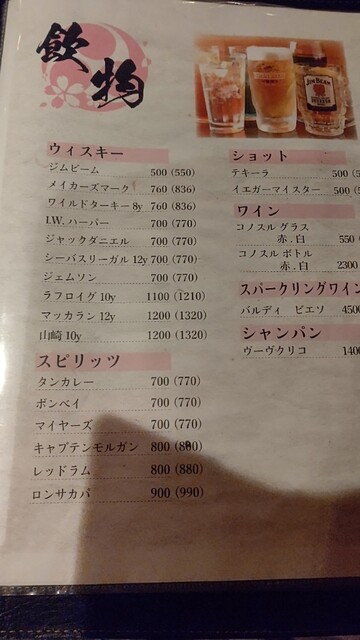 飲物
ウィスキー
ジムビーム 500 (550)
メイカーズマーク 760 (836)
ワイルドターキー 8y 760 (836)
I.W. ハーパー 700 (770)
ジャックダニエル 700 (770)
シーバスリーガル 12y 700 (770)
ジェムソン 700 (770)
ラフロイグ 10y 1100 (1210)
マッカラン 12y 1200 (1320)
山崎 10y 1200 (1320)
スピリッツ
タンカレー 700 (770)
ボンベイ 700 (770)
マイヤーズ 700 (770)
キャプテンモルガン 800 (880)
レッドラム 800 (880)
ロンサカパ 900 (990)
ショット
テキーラ 500
イエガーマイスター 500
ワイン
コノスル グラス
赤 . 白 550
コノスル ボトル
赤 . 白 2300
スパークリングワイン
バルディ ビエソ
シャンパン
ヴーヴクリコ
JIM BEAM